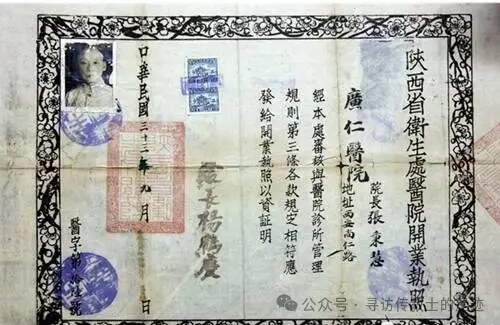 陝西省衛生處醫院開業執照
廣仁醫院
院長張秉慧
地址西安尚仁路
經本處審核與醫院診所管理
規則第三條各款規定相符應
發給開業執照以資証明
處長楊鶴慶
中華民國三十二年九月 日
醫字第 號
公众号 · 寻访传 士的 迹